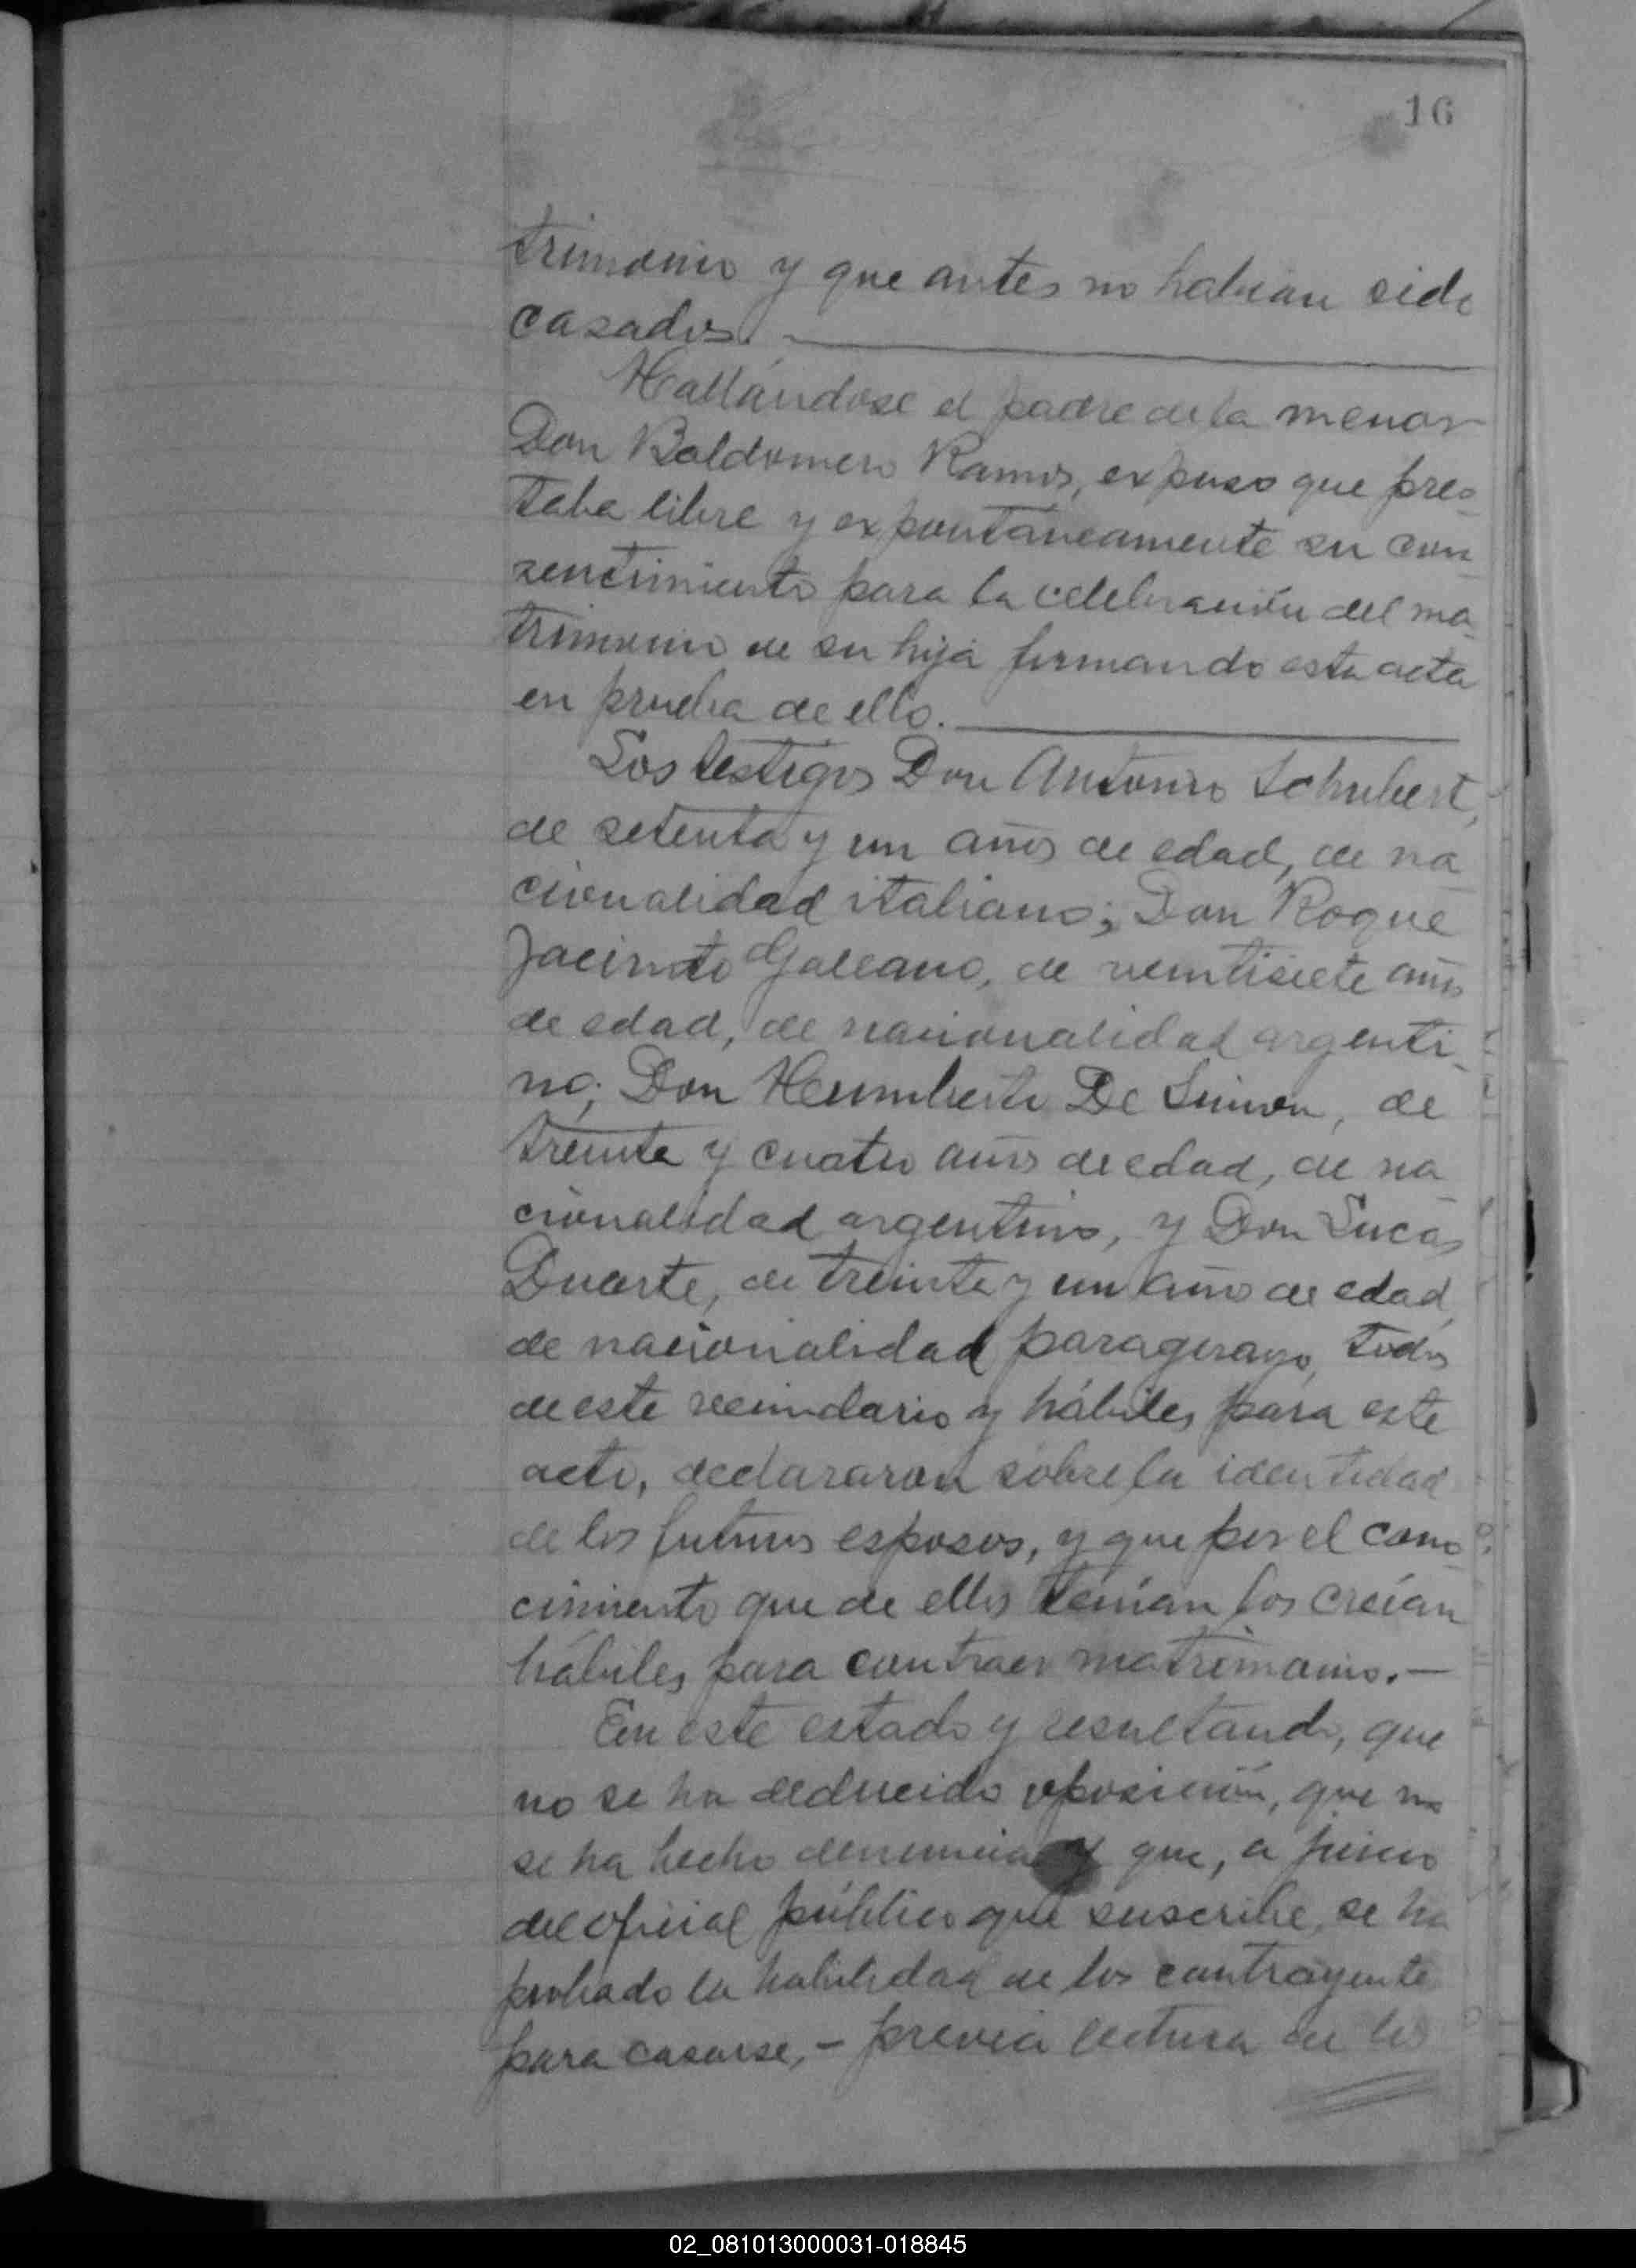 16
trimonio y que antes no habian sido
casados.
Hallándose el padre de la menor
Don Baldomero Ramos, expuso que pres-
taba libre y expontáneamente su con-
sentimiento para la celebración del ma-
trimonio de su hija firmando esta acta
en prueba de ello.
Los testigos Don Antonio Schubert,
de setenta y un años de edad, de na-
cionalidad italiano; Don Roque
Jacinto Galeano, de veintisiete años
de edad, de nacionalidad argenti-
no; Don Humberto De Simon, de
treinta y cuatro años de edad, de na-
cionalidad argentino, y Don Lucas
Duarte, de treinta y un años de edad,
de nacionalidad paraguayo, todos
de este vecindario y hábiles para este
acto, declararon sobre la identidad
de los futuros esposos, y que por el cono-
cimiento que de ellos tenían los creían
hábiles para contraer matrimonio.—
En este estado y resultando, que
no se ha deducido oposición, que no
se ha hecho denuncia y que, a juicio
del oficial público que suscribe, se ha
probado la habilidad de los contrayente
para casarse,- previa lectura de los
02_081013000031-018845